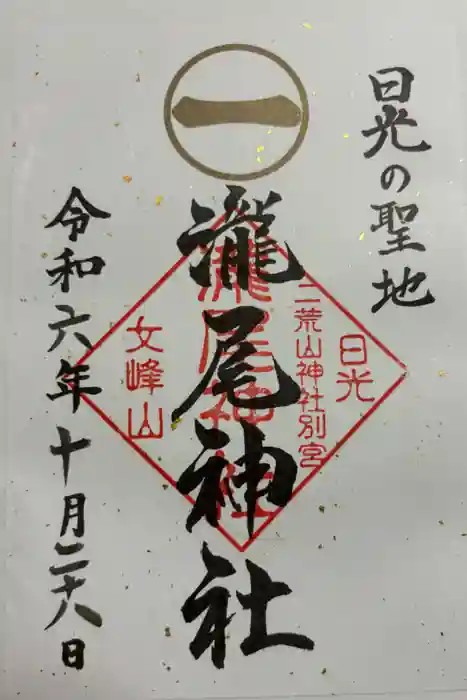 一
日光の聖地
瀧尾神社
日光
二荒山神社別宮
瀧尾神社
女峰山
令和六年十月二十八日